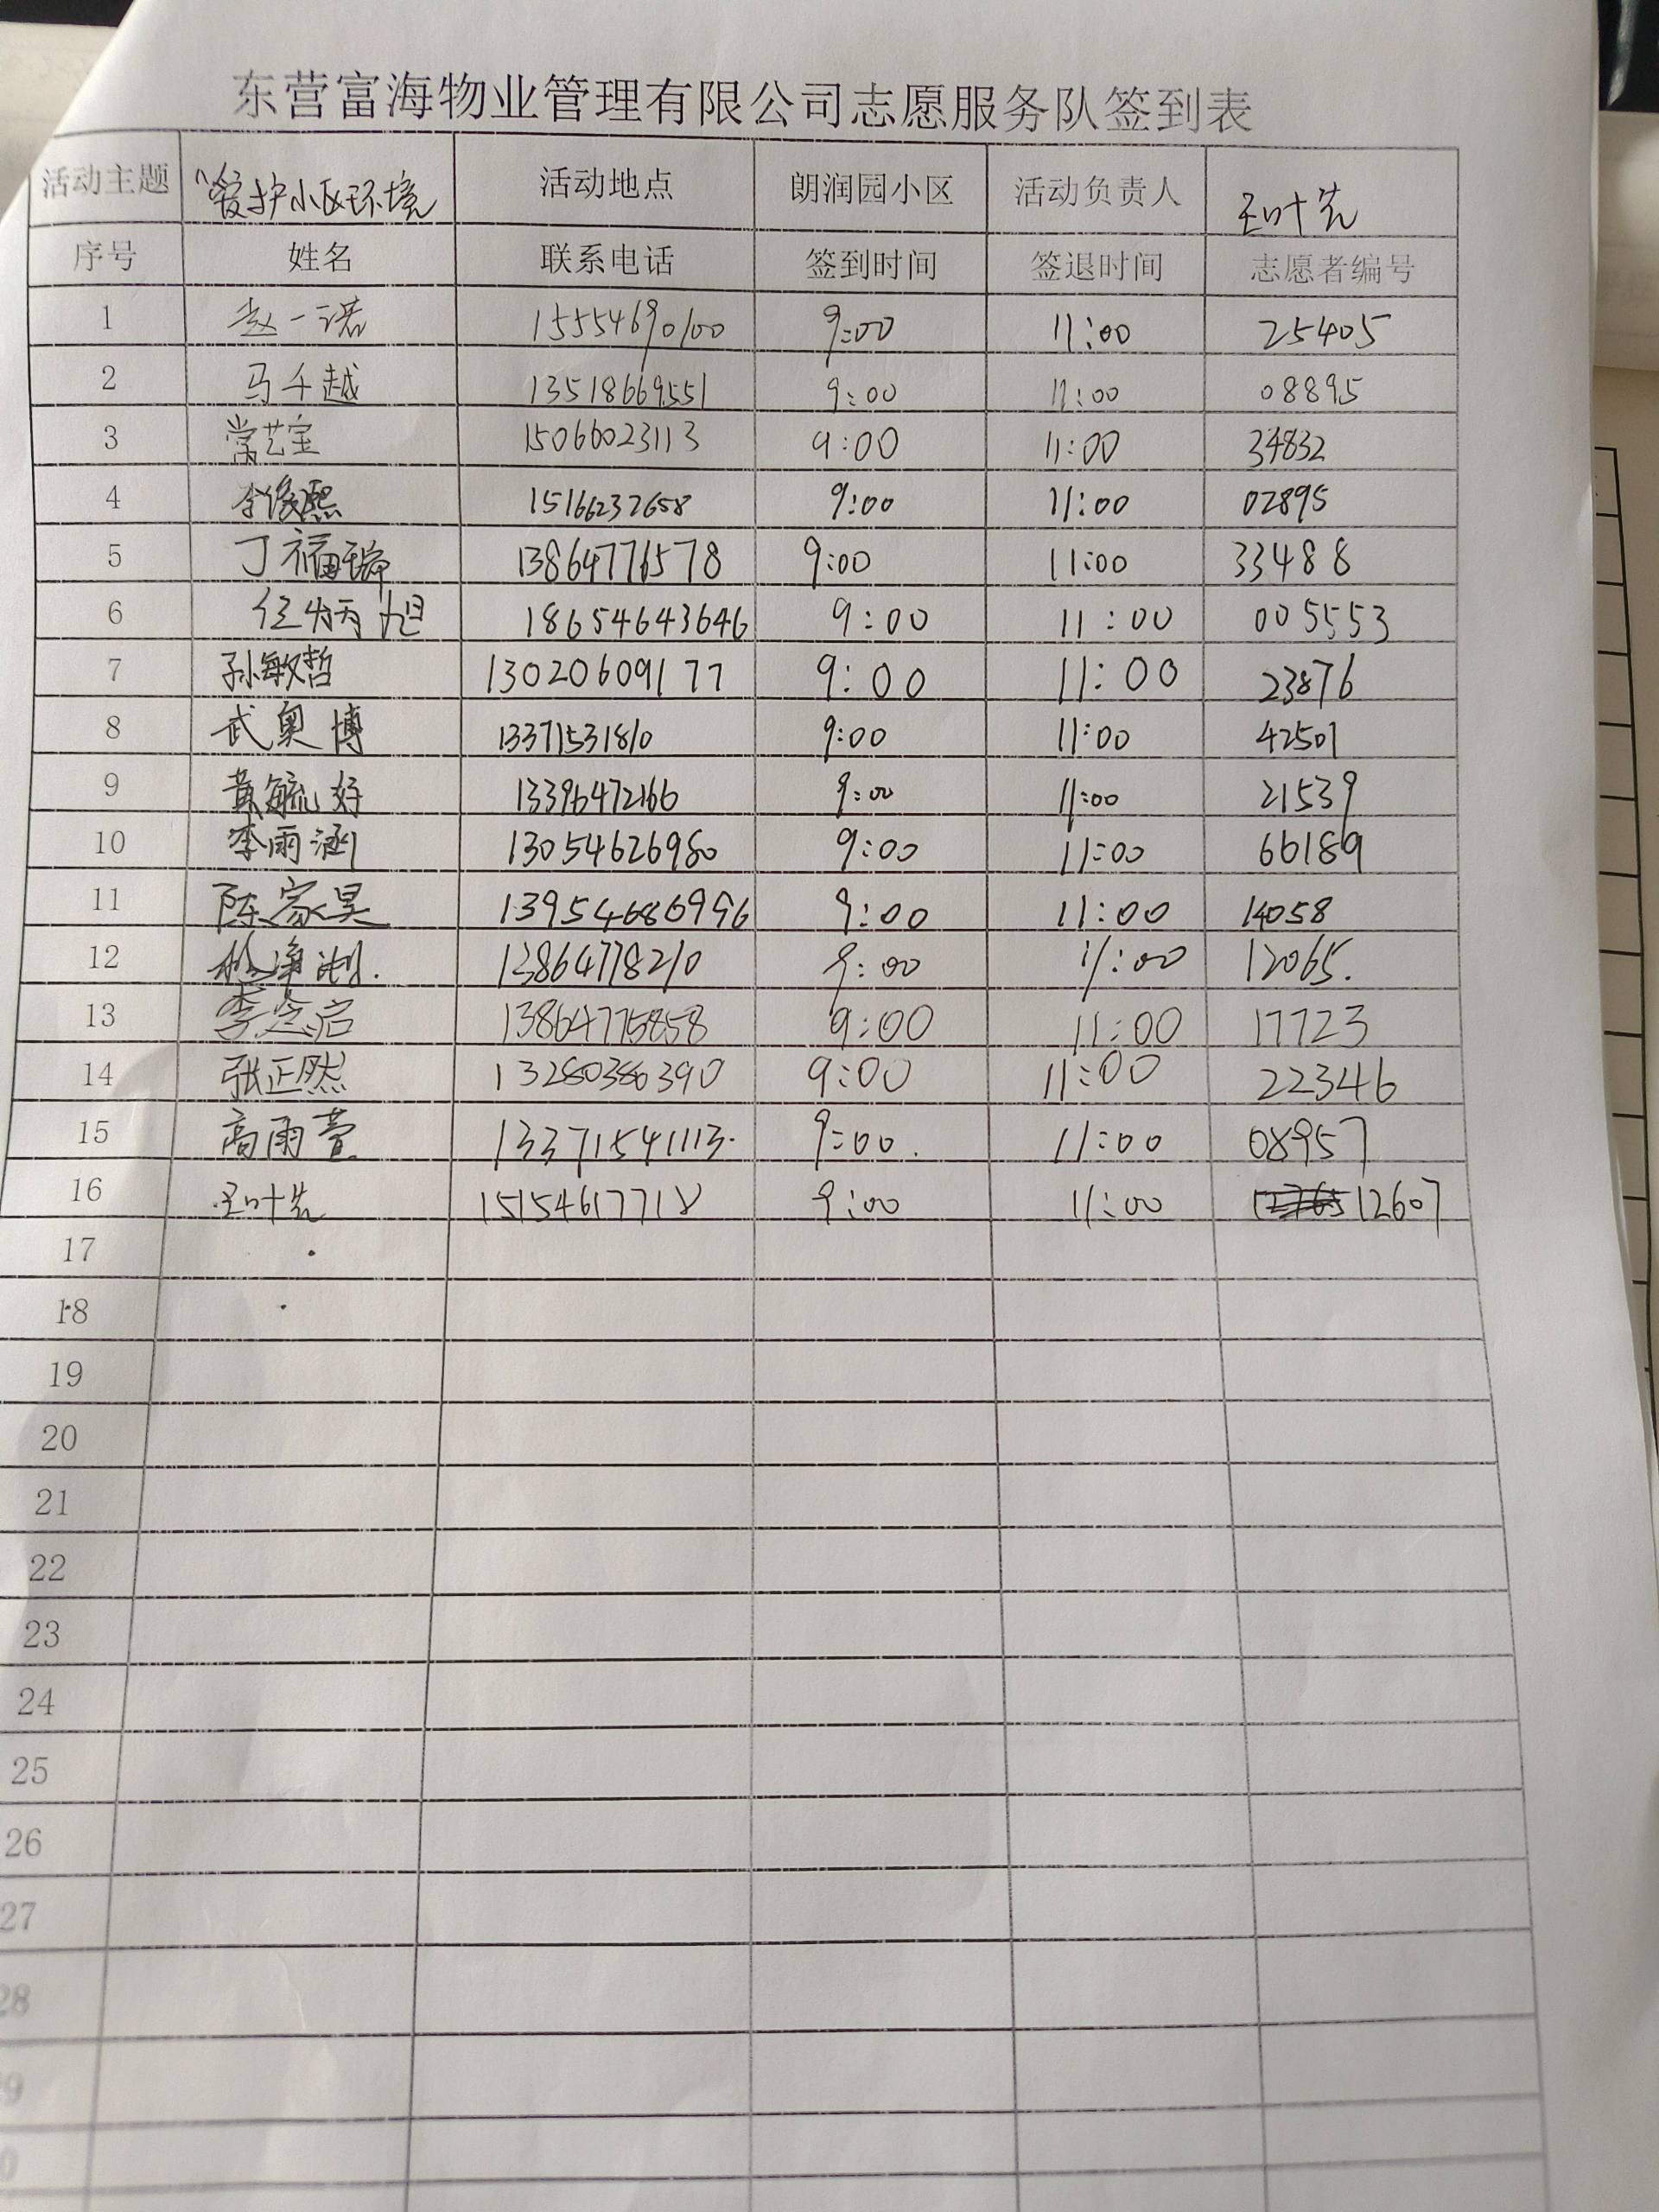 东营富海物业管理有限公司志愿服务队签到表
活动主题 "爱护小区环境 活动地点 朗润园小区 活动负责人 王叶芝
序号 姓名 联系电话 签到时间 签退时间 志愿者编号
1 赵一诺 15554690100 9:00 11:00 25405
2 马千越 13518669551 9:00 11:00 08895
3 常艺宝 15066023113 9:00 11:00 34832
4 李俊熙 15166232658 9:00 11:00 02895
5 丁福瑞 13864776578 9:00 11:00 33488
6 任炳旭 18654643646 9:00 11:00 005553
7 孙敏哲 13020609177 9:00 11:00 23876
8 武奥博 13371531810 9:00 11:00 42501
9 黄毓好 13396472166 9:00 11:00 21539
10 李雨涵 13054626980 9:00 11:00 66189
11 陈家昊 13954686996 9:00 11:00 14058
12 13864778210 9:00 11:00 12065.
13 李念启 13864775858 9:00 11:00 17723
14 张正然 13280380390 9:00 11:00 22346
15 高雨萱 13371541113. 9:00. 11:00 08957
16 王叶芝 15154617718 9:00 11:00 12607
17
18
19
20
21
22
23
24
25
26
27
28